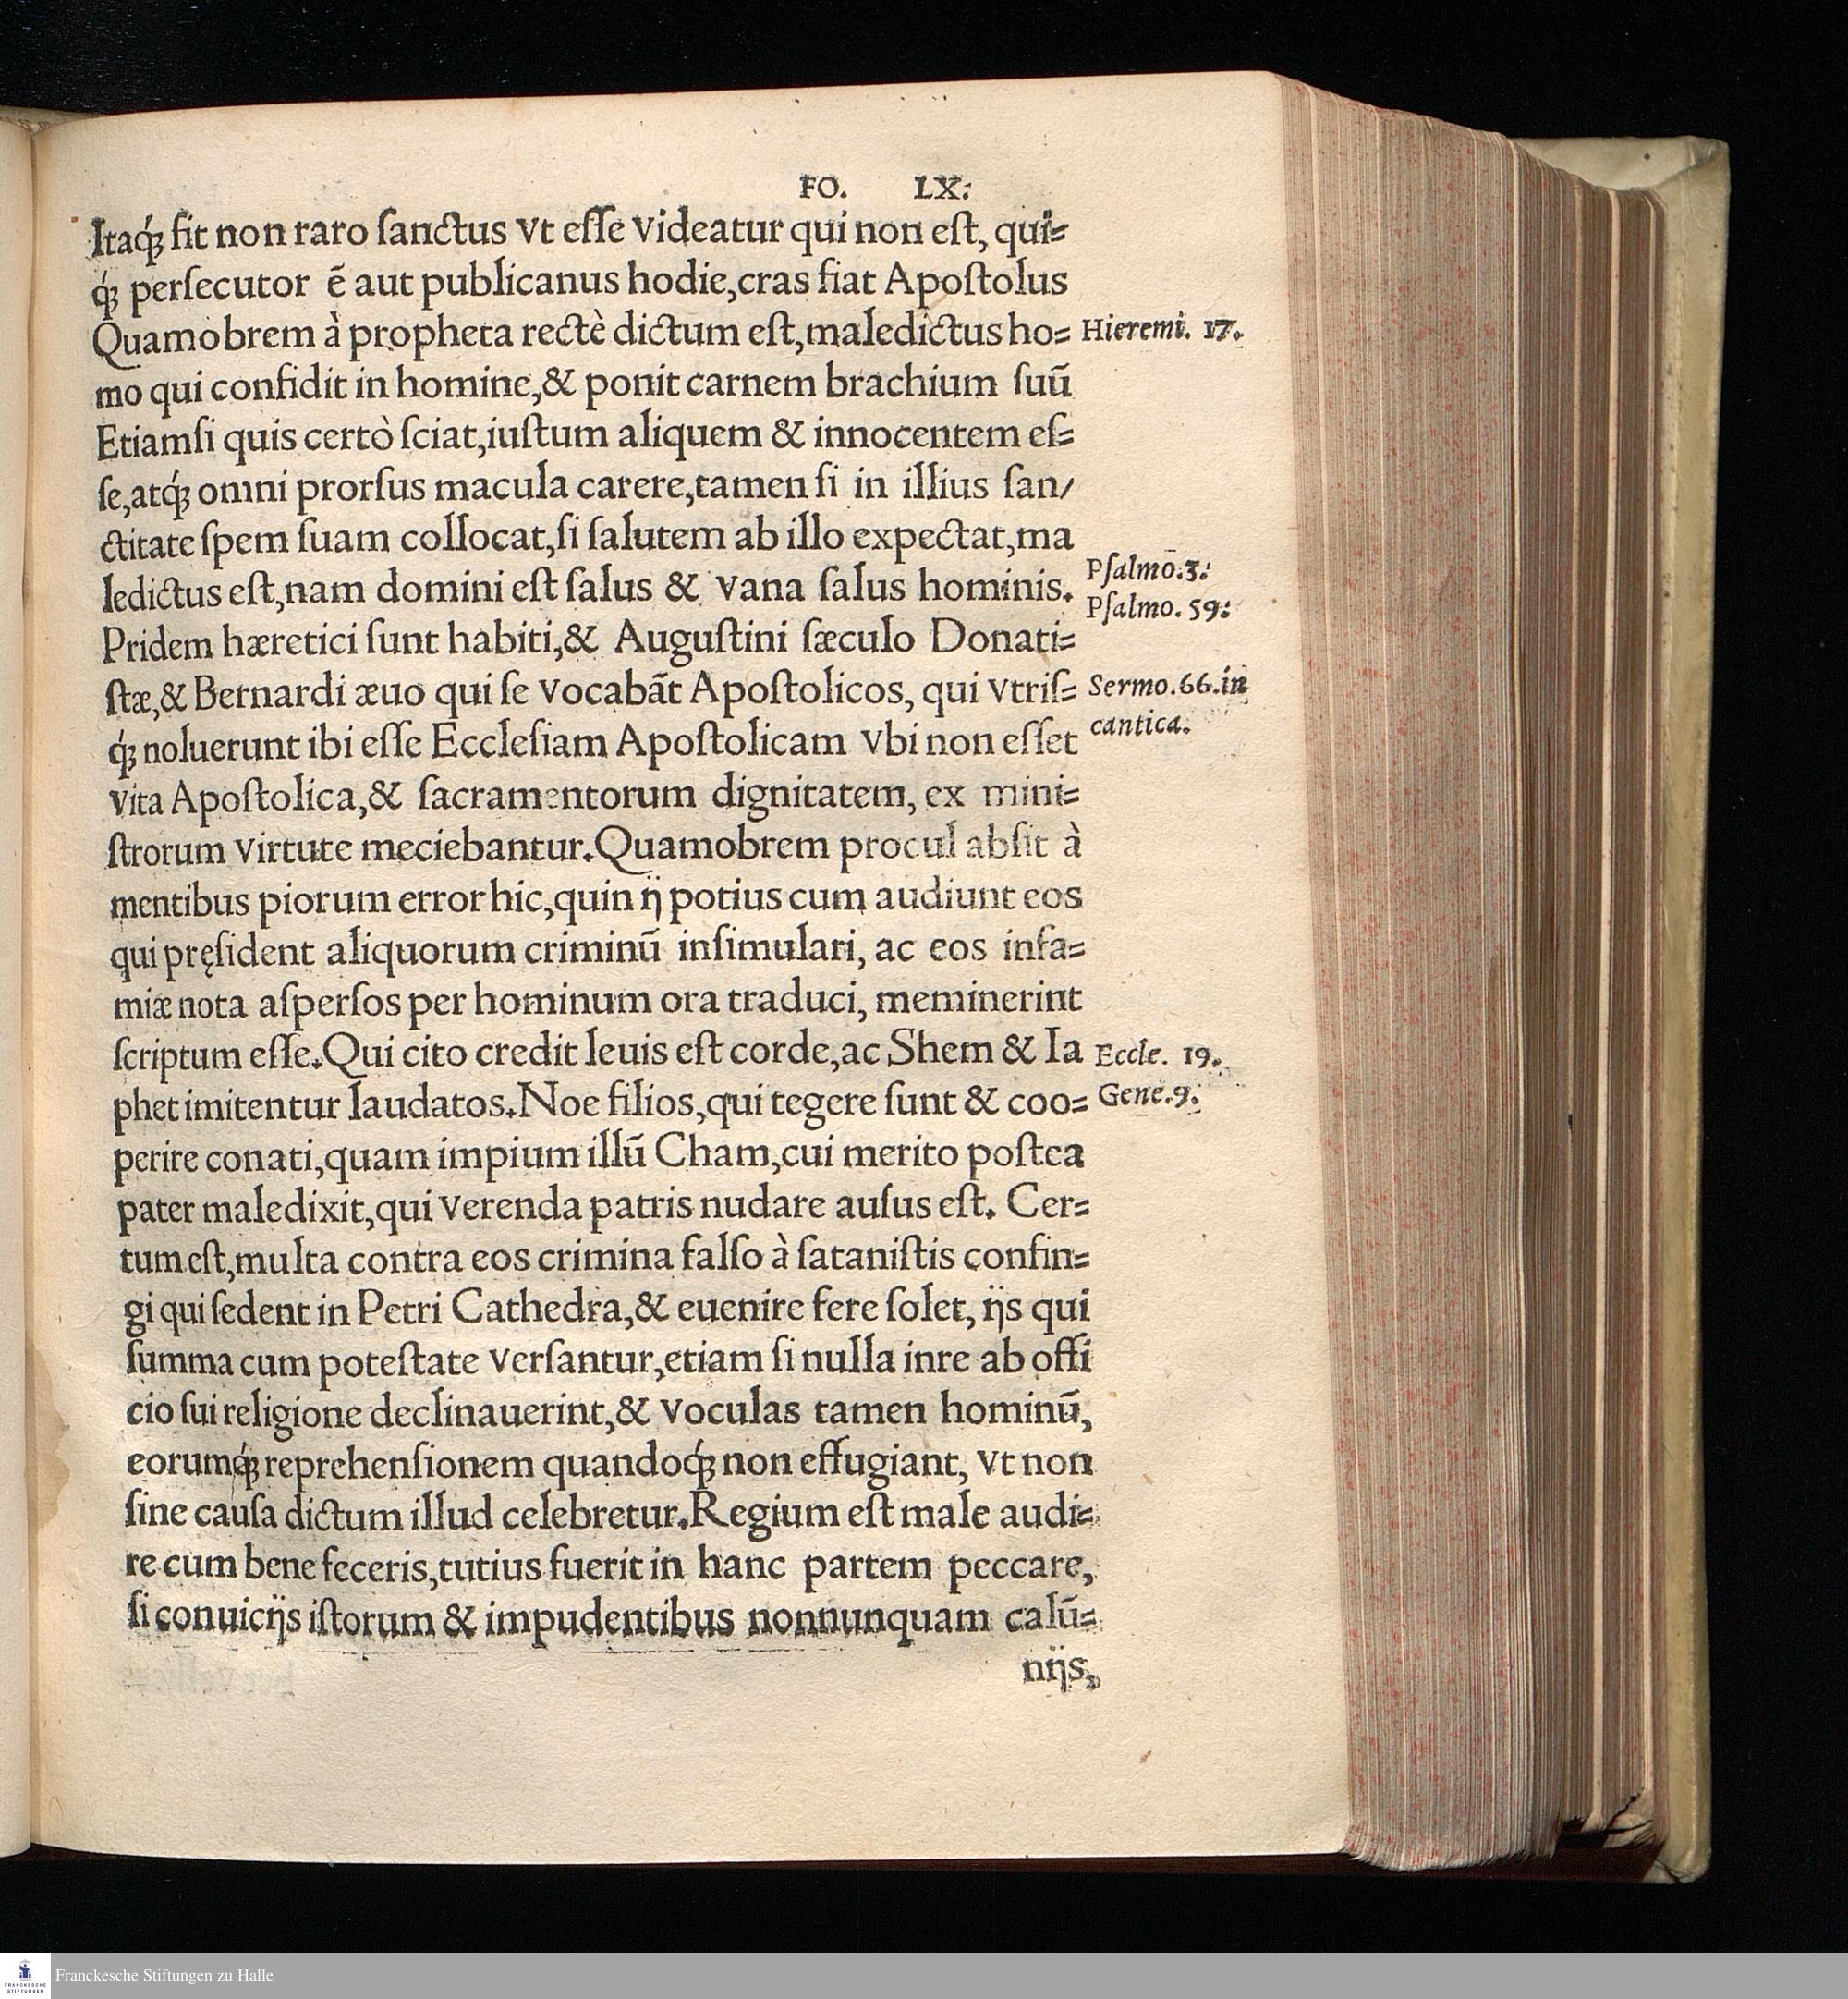 FO. LX:
Itaq́ꝫ fit non raro ſanctus vt eſſe videatur qui non eſt, qui⸗
q́ꝫ perſecutor ẽ aut publicanus hodie,cras fiat Apoſtolus
Quamobrem à propheta rectè dictum eſt,maledictus ho⸗
Hieremi. 17.
mo qui confidit in homine,& ponit carnem brachium ſuũ
Etiamſi quis certò ſciat,iuſtum aliquem & innocentem eſ⸗
ſe,atq́ꝫ omni prorſus macula carere,tamen ſi in illius ſan/
ctitate ſpem ſuam collocat,ſi ſalutem ab illo expectat,ma
ledictus eſt,nam domini eſt ſalus & vana ſalus hominis.
Pſalmō.3:
Pſalmo. 59:
Pridem hæretici ſunt habiti,& Auguſtini ſæculo Donati⸗
ſtæ,& Bernardi æuo qui ſe vocabãt Apoſtolicos, qui vtriſ⸗
Sermo.66.in
cantica.
q́ꝫ noluerunt ibi eſſe Eccleſiam Apoſtolicam vbi non eſſet
vita Apoſtolica,& ſacramentorum dignitatem, ex mini⸗
ſtrorum virtute meciebantur.Quamobrem procul abſit à
mentibus piorum error hic,quin ij potius cum audiunt eos
qui pręſident aliquorum criminũ inſimulari, ac eos infa⸗
miæ nota aſperſos per hominum ora traduci, meminerint
ſcriptum eſſe.Qui cito credit leuis eſt corde,ac Shem & Ia
Eccle. 19.
phet imitentur laudatos.Noe filios,qui tegere ſunt & coo⸗
Gene.9.
perire conati,quam impium illũ Cham,cui merito poſtea
pater maledixit,qui verenda patris nudare auſus eſt. Cer⸗
tum eſt,multa contra eos crimina falſo à ſataniſtis confin⸗
gi qui ſedent in Petri Cathedra,& euenire fere ſolet, ijs qui
ſumma cum poteſtate verſantur,etiam ſi nulla inre ab offi
cio ſui religione declinauerint,& voculas tamen hominũ,
eorumq́ꝫ reprehenſionem quandoq́ꝫ non effugiant, vt non
ſine cauſa dictum illud celebretur.Regium eſt male audi⸗
re cum bene feceris,tutius fuerit in hanc partem peccare,
ſi conuicijs iſtorum & impudentibus nonnunquam calũ⸗
nijs,
Franckesche Stiftungen zu Halle
FRANCKESCHE
STIFTUNGEN